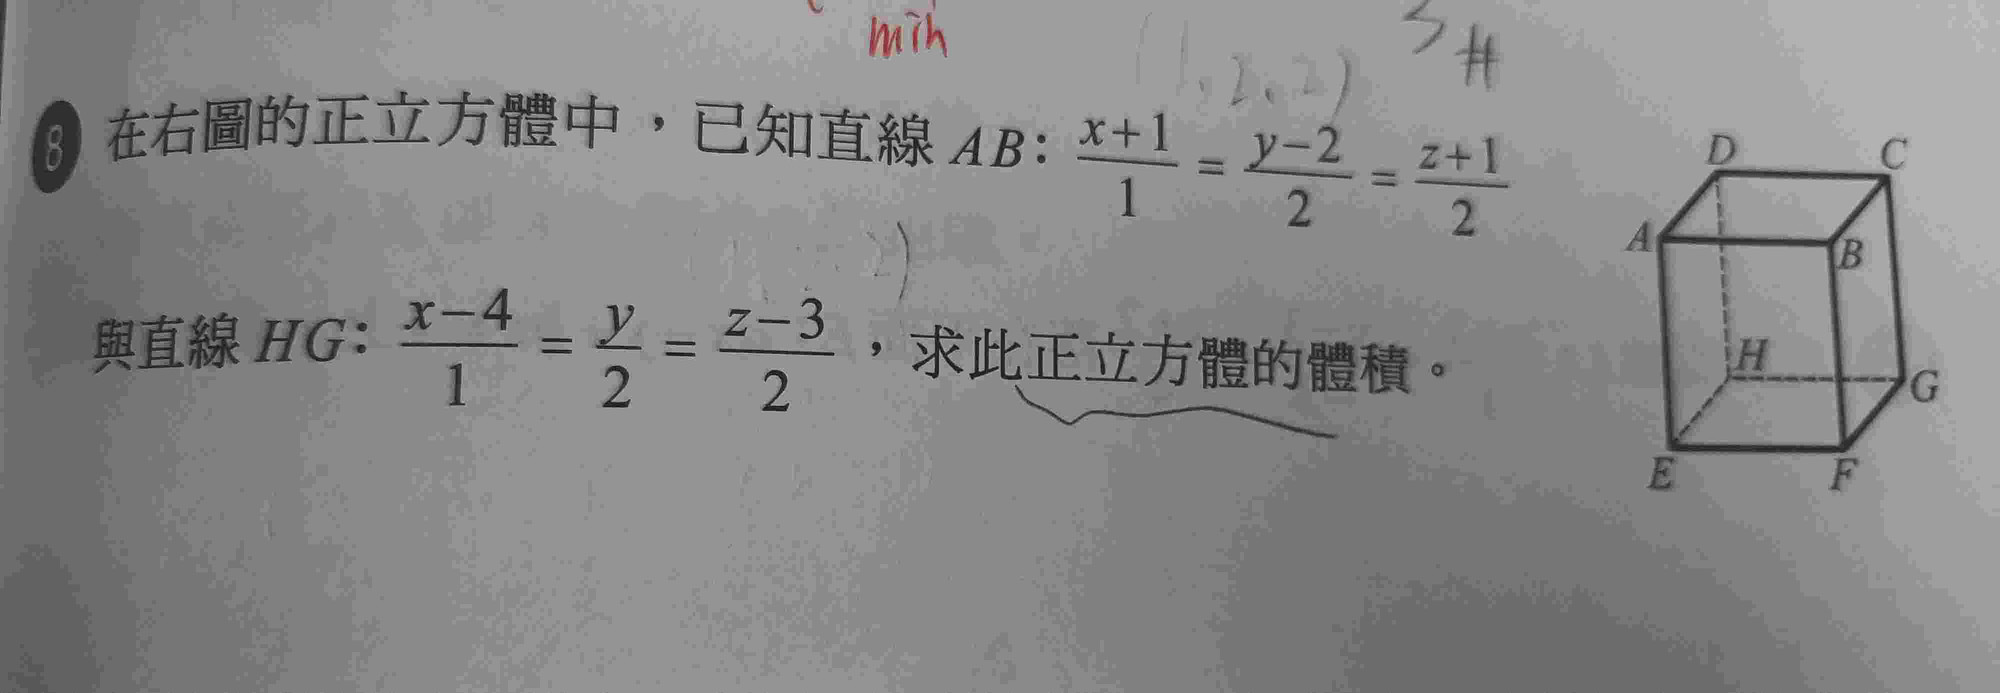 min
(1, 2, 2)
8 在右圖的正立方體中，已知直線 AB: \frac{x+1}{1} = \frac{y-2}{2} = \frac{z+1}{2}
與直線 HG: \frac{x-4}{1} = \frac{y}{2} = \frac{z-3}{2}，求此正立方體的體積。
D C
A B
H G
E F